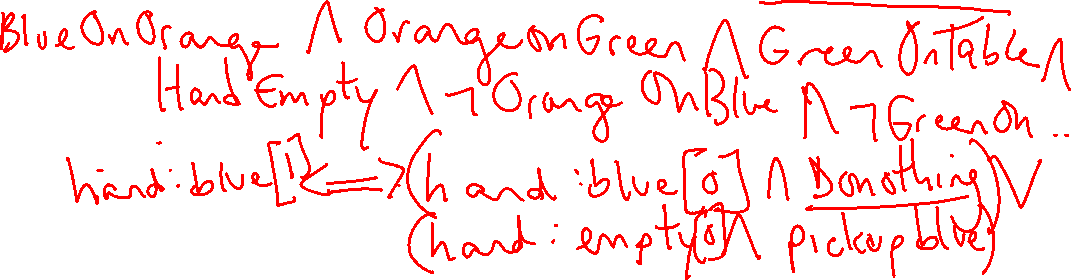 BlueOnOrange ∧ OrangeonGreen ∧ GreenOnTable ∧
HandEmpty ∧ ¬OrangeOnBlue ∧ ¬GreenOn..
hand:blue[1] <=> (hand:blue[0] ∧ Donothing) ∨
(hand:empty[0] ∧ pickupblue)